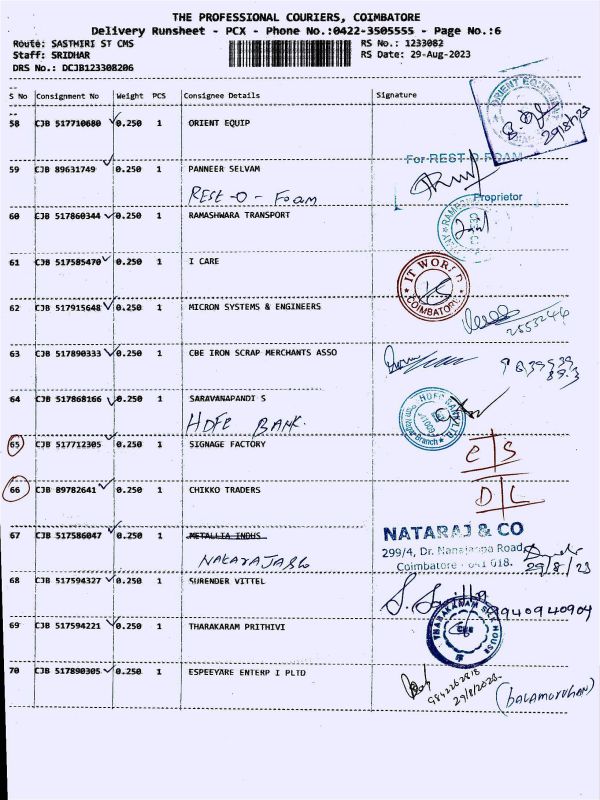 THE PROFESSIONAL COURIERS, COIMBATORE
Delivery Runsheet - PCX - Phone No.:0422-3505555 - Page No.:6
Route: SASTHIRI ST CMS RS No.: 1233082
Staff: SRIDHAR RS Date: 29-Aug-2023
DRS No.: DCJB123308206
S No Consignment No Weight PCS Consignee Details Signature
58 CJB 517710680 0.250 1 ORIENT EQUIP
ORIENT EQUIPMENT
29/8/23
59 CJB 89631749 0.250 1 PANNEER SELVAM
For REST-O-FOAM
REST-O-Foam
Proprietor
60 CJB 517860344 0.250 1 RAMASHWARA TRANSPORT
61 CJB 517585470 0.250 1 I CARE
IT WORLD
COIMBATORE
62 CJB 517915648 0.250 1 MICRON SYSTEMS & ENGINEERS
2553244
63 CJB 517890333 0.250 1 CBE IRON SCRAP MERCHANTS ASSO
64 CJB 517868166 0.250 1 SARAVANAPANDI S
HDFC BANK
65 CJB 517712305 0.250 1 SIGNAGE FACTORY
C S
66 CJB 89782641 0.250 1 CHIKKO TRADERS
D L
67 CJB 517586047 0.250 1 METALLIA INDUS
NATARAJ & CO
299/4, Dr. Nanjappa Road,
Coimbatore - 641 018.
29/8/23
68 CJB 517594327 0.250 1 SURENDER VITTEL
9940940904
69 CJB 517594221 0.250 1 THARAKARAM PRITHIVI
THARAKARAM SILK HOUSE
CBE
70 CJB 517890305 0.250 1 ESPEEYARE ENTERP I PLTD
29/8/2023
(balamurukan)